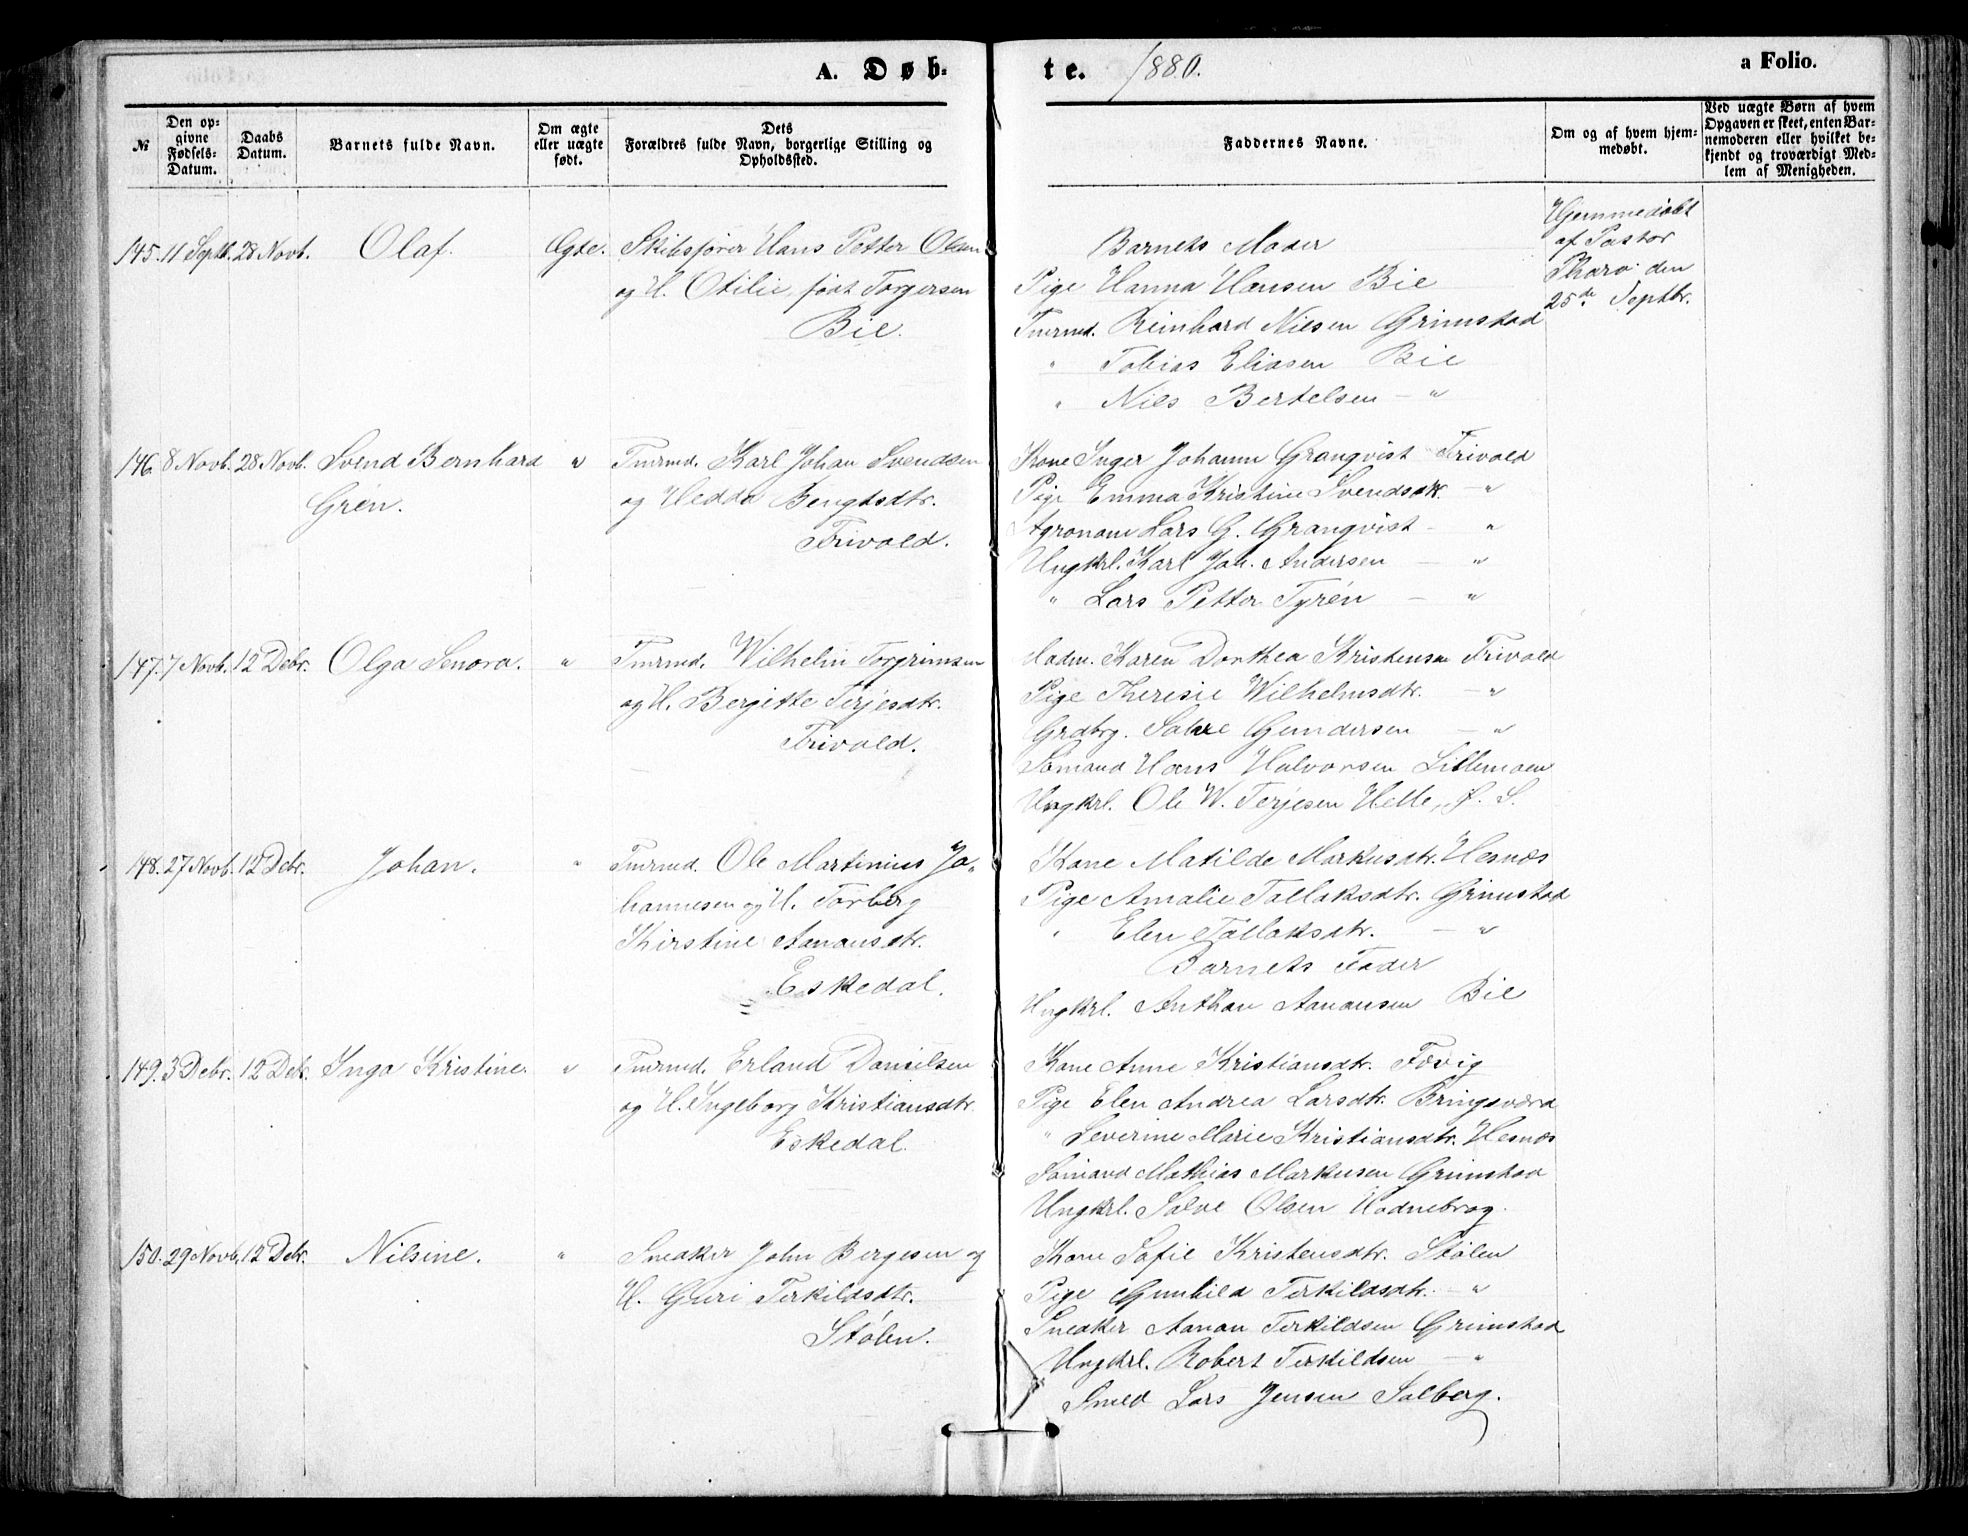 A. Døb-
te. 1880.
a Folio.
№
Den op-
givne
Fødsels-
Datum.
Daabs
Datum.
Barnets fulde Navn.
Om ægte
eller uægte
født.
Dets
Forældres fulde Navn, borgerlige Stilling og
Opholdssted.
Faddernes Navne.
Om og af hvem hjem-
medøbt.
Ved uægte Børn af hvem
Opgaven er skeet, enten Bar-
nemoderen eller hvilket be-
kjendt og troværdigt Med-
lem af Menigheden.
145. 11 Septb. 28 Novb. Olaf. Ægte. Skibsfører Hans Petter Olsen
og H. Otilie, født Torgersen
Bie.
Barnets Moder
Pige Hanna Hansen Bie
Tmrmd. Reinhard Nilsen Grimstad
" Tobias Eliasen Bie
" Nils Bertelsen — "
Hjemmedøbt
af Pastor
den
25de Septbr.
146. 8 Novb. 28 Novb. Svend Bernhard " Tmrmd. Karl Johan Svendsen
Grén. og H. Hedda Bengtsdtr.
Frivold.
Kone Inger Johanne Granqvist Frivold
Pige Emma Kristine Svendsdtr. — "
Agronom Lars G. Granqvist — "
Ungkrl. Karl Joh. Andersen — "
" Lars Petter Tyrén — "
147. 7 Novb. 12 Debr. Olga Senora. " Tmrmd. Wilhelm Torgrimsen
og H. Bergitte Terjesdtr.
Frivold.
Madm. Karen Dorthea Kristensen Frivold
Pige Theresie Wilhelmsdtr. — "
Grdbrg. Salve Gundersen — "
Sømand Hans Halvorsen Lillemoen
Ungkrl. Ole W. Terjesen Helle, Ø. S.
148. 27 Novb. 12 Debr. Johan. " Tmrmd. Ole Martinius Jo-
hannesen og H. Torberg
Kirstine Aanonsdtr.
Eskedal.
Kone Matilde Markusdtr. Hesnæs
Pige Amalie Tallaksdtr. Grimstad
" Elen Tallaksdtr. — "
Barnets Fader
Ungkrl. Anthon Aanonsen Bie
149. 3 Debr. 12 Debr. Inga Kristine. " Tmrmd. Erland Danielsen
og H. Ingeborg Kristiansdtr.
Eskedal.
Kone Anne Kristiansdtr. Fævig
Pige Elen Andrea Larsdtr. Bringsværd
" Severine Marie Kristiansdtr. Hesnæs
Sømand Mathias Markusen Grimstad
Ungkrl. Salve Olsen Hodnebrog.
150. 29 Novb. 12 Debr. Nilsine. " Snedker John Bergesen og
H. Guri Terkildsdtr.
Stølen.
Kone Sofie Kristensdtr. Stølen
Pige Gunhild Terkildsdtr. — "
Snedker Aanon Terkildsen Grimstad
Ungkrl. Robert Terkildsen — "
Smed Lars Jensen Solberg.